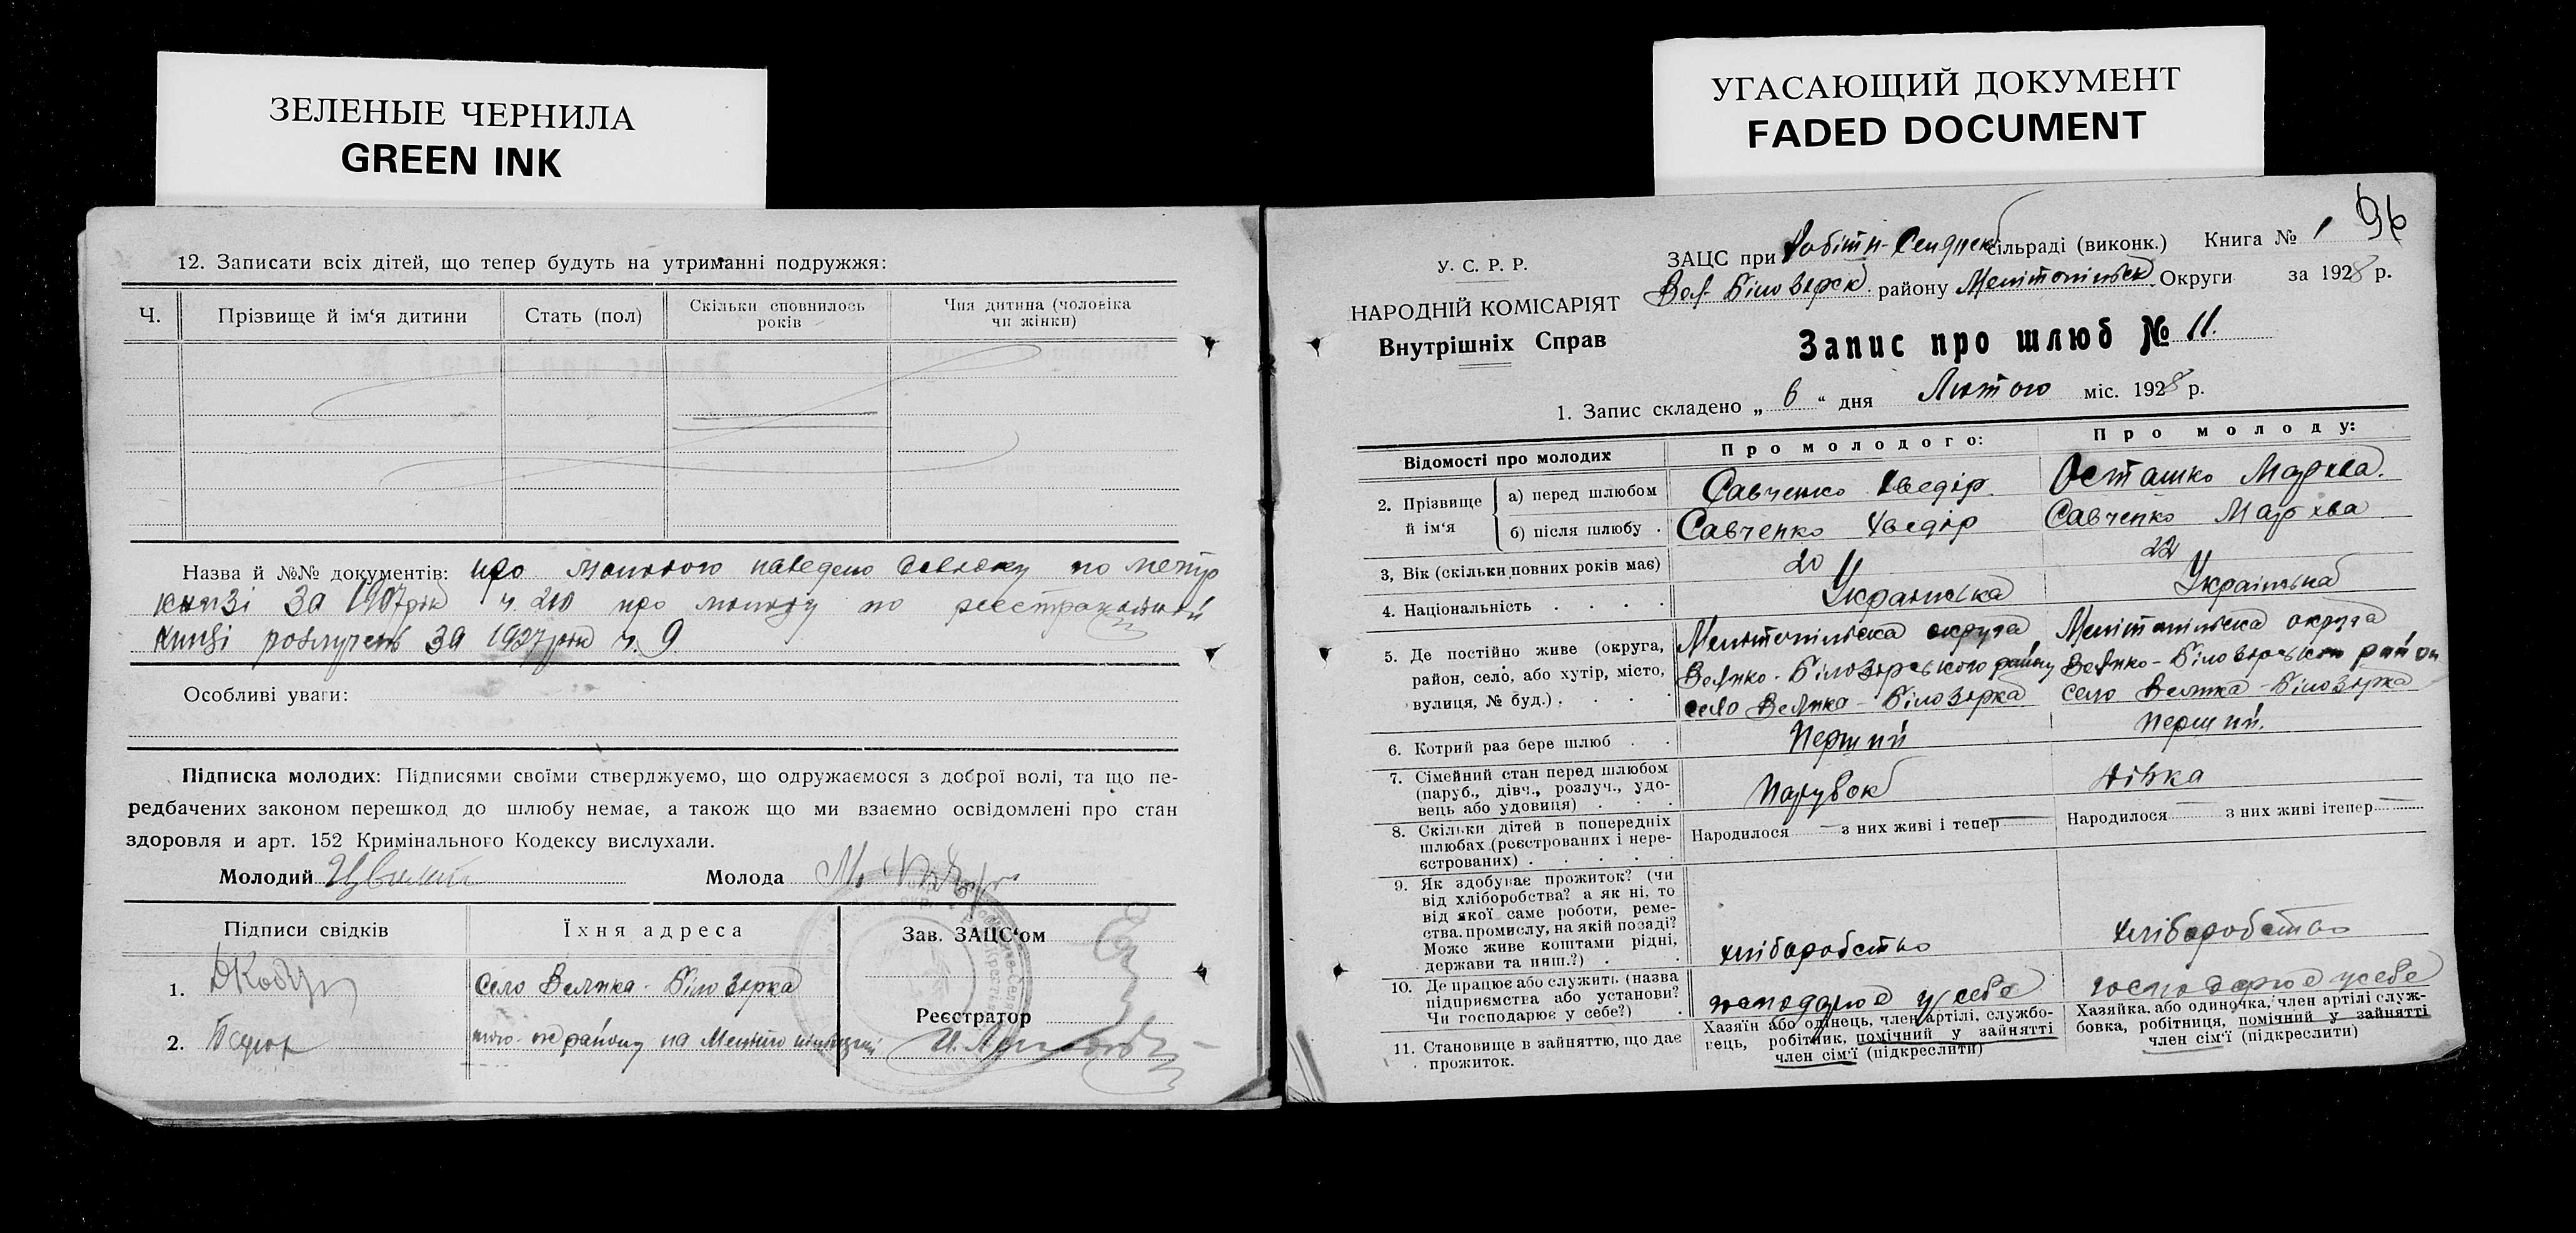 ЗЕЛЕНЫЕ ЧЕРНИЛА
GREEN INK
12. Записати всіх дітей, що тепер будуть на утриманні подружжя:
Ч.
Прізвище й ім‘я дитини
Стать (пол)
Скільки сповнилось
років
Чия дитина (чоловіка
чи жінки)
Назва й №№ документів: про молодого наведено довідку по метр
книзі за 1907 рік ч. 210 про молоду по реєстраційній
книзі розлучень за 1927 рік ч. 9
Особливі уваги:
Підписка молодих: Підписями своїми стверджуємо, що одружаємося з доброї волі, та що пе-
редбачених законом перешкод до шлюбу немає, а також що ми взаємно освідомлені про стан
здоровля и арт. 152 Кримінального Кодексу вислухали.
Молодий
Молода
Підписи свідків
Їхня адреса
Зав. ЗАЦС‘ом
1.
село Велика-Білозірка
Реєстратор
2.
району на Мелітопільщині
УГАСАЮЩИЙ ДОКУМЕНТ
FADED DOCUMENT
96
У. С. Р. Р.
НАРОДНІЙ КОМІСАРІЯТ
Внутрішніх Справ
ЗАЦС при сільраді (виконк.) Книга № 1
Вел-Білозірск району Мелітопільск Округи за 1928 р.
Запис про шлюб № 11.
1. Запис складено „ 6 “ дня Лютого міс. 1928 р.
Відомості про молодих
Про молодого:
Про молоду:
2. Прізвище й ім‘я
а) перед шлюбом
Савченко Хведір
Осташко Мархва.
б) після шлюбу .
Савченко Хведір
Савченко Мархва
3, Вік (скільки повних років має)
20
22
4. Національність . . . .
Українська
Українська
5. Де постійно живе (округа,
район, село, або хутір, місто,
вулиця, № буд.) . . .
Мелітопільска округа
Велико-Білозірського району
село Велика-Білозірка
Мелітопільска округа
Велико-Білозірського район
село Велика-Білозірка
6. Котрий раз бере шлюб . .
Перший
Перший.
7. Сімейний стан перед шлюбом
(паруб., дівч., розлуч., удо-
вець або удовиця) . . .
парубок
дівка
8. Скільки дітей в попередніх
шлюбах (реєстрованих і нере-
єстрованих) . . . . .
Народилося — з них живі і тепер —
Народилося — з них живі ітепер —
9. Як здобуває прожиток? (чи
від хліборобства? а як ні, то
від якої саме роботи, реме-
ства, промислу, на якій посаді?
Може живе коштами рідні,
держави та инш.?) . .
хліборобство
хліборобство
10. Де працює або служить (назва
підприємства або установи?
Чи господарює у себе?) .
господарює у себе
господарює у себе
11. Становище в зайняттю, що дає
прожиток.
Хазяїн або одінець, член артілі, службо-
вець, робітник, помічний у зайнятті
член сім‘ї (підкреслити)
Хазяйка, або одиночка, член артілі служ-
бовка, робітниця, помічний у зайнятті
член сім‘ї (підкреслити)